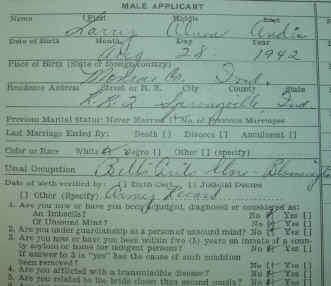 MALE APPLICANT
Name First Middle Last
Larry Alvin
Date of Birth Month Day Year
Aug 28 1942
Place of Birth (State or foreign country)
Monroe Co. Ind.
Residence Address Street or R. R. City County State
R.R.2 Springville Ind.
Previous Marital Status: Never Married No. of Previous Marriages
Last Marriage Ended By: Death [ ] Divorce [ ] Annulment [ ]
Color or Race White Negro [ ] Other [ ] (specify)
Usual Occupation Bill's Auto - Bloomington
Date of birth verified by: [ ] Birth Cert. [ ] Judicial Decree
[ ] Other (Specify) Army Record
1. Are you now or have you been adjudged, diagnosed or considered as:
An Imbecile? No Yes [ ]
Of Unsound Mind? No Yes [ ]
2. Are you under guardianship as a person of unsound mind? No Yes [ ]
3. Are you now or have you been within five (5) years an inmate of a county asylum or home for indigent persons? No Yes [ ]
If answer to 3 is "yes" has the cause of such condition
been removed? No [ ] Yes [ ]
4. Are you afflicted with a transmissible disease? No Yes [ ]
5. Are you related to the bride closer than second cousin? No Yes [ ]